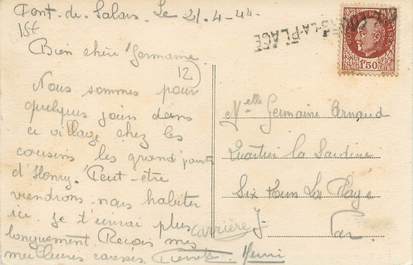 Pont-de-Salars. Le 21-4-44
Bien chère Germaine
12
Nous sommes pour
quelques jours dans
ce village chez les
cousins les grand
d'Henry. Peut-être
viendrons-nous habiter
ici. Je t'écrirai plus
longuement Reçois mes
meilleures caresses. Henri
LA-PLAGE
1F50
Melle Germaine Arnaud
Quartier La Sardine
Six Fours La Plage
Var